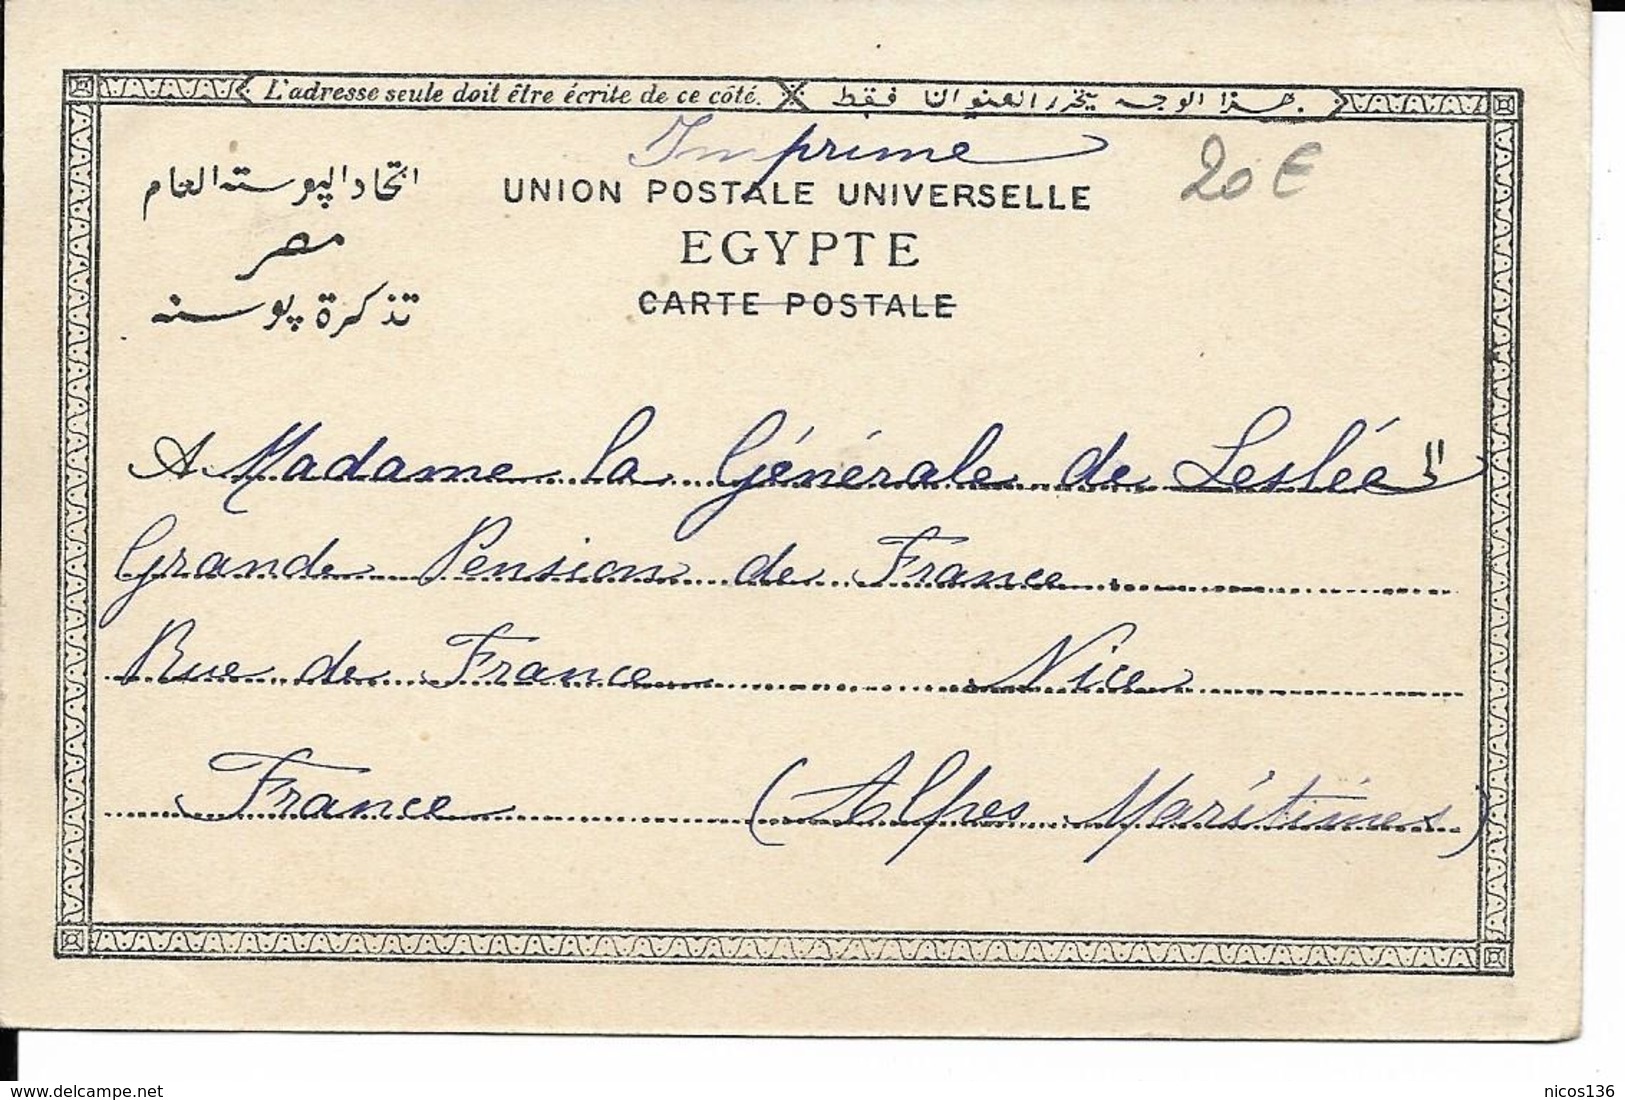 L'adresse seule doit être écrite de ce côté. هذا الوجه يتحرر العنوان فقط.
Imprime
20€
اتحاد البوسته العام
UNION POSTALE UNIVERSELLE
مصر
EGYPTE
تذكرة بوسته
CARTE POSTALE
A Madame la Générale de Leslée
Grande Pension de France
Rue de France Nice
France (Alpes Marítimes)
www.delcampe.net
nicos136